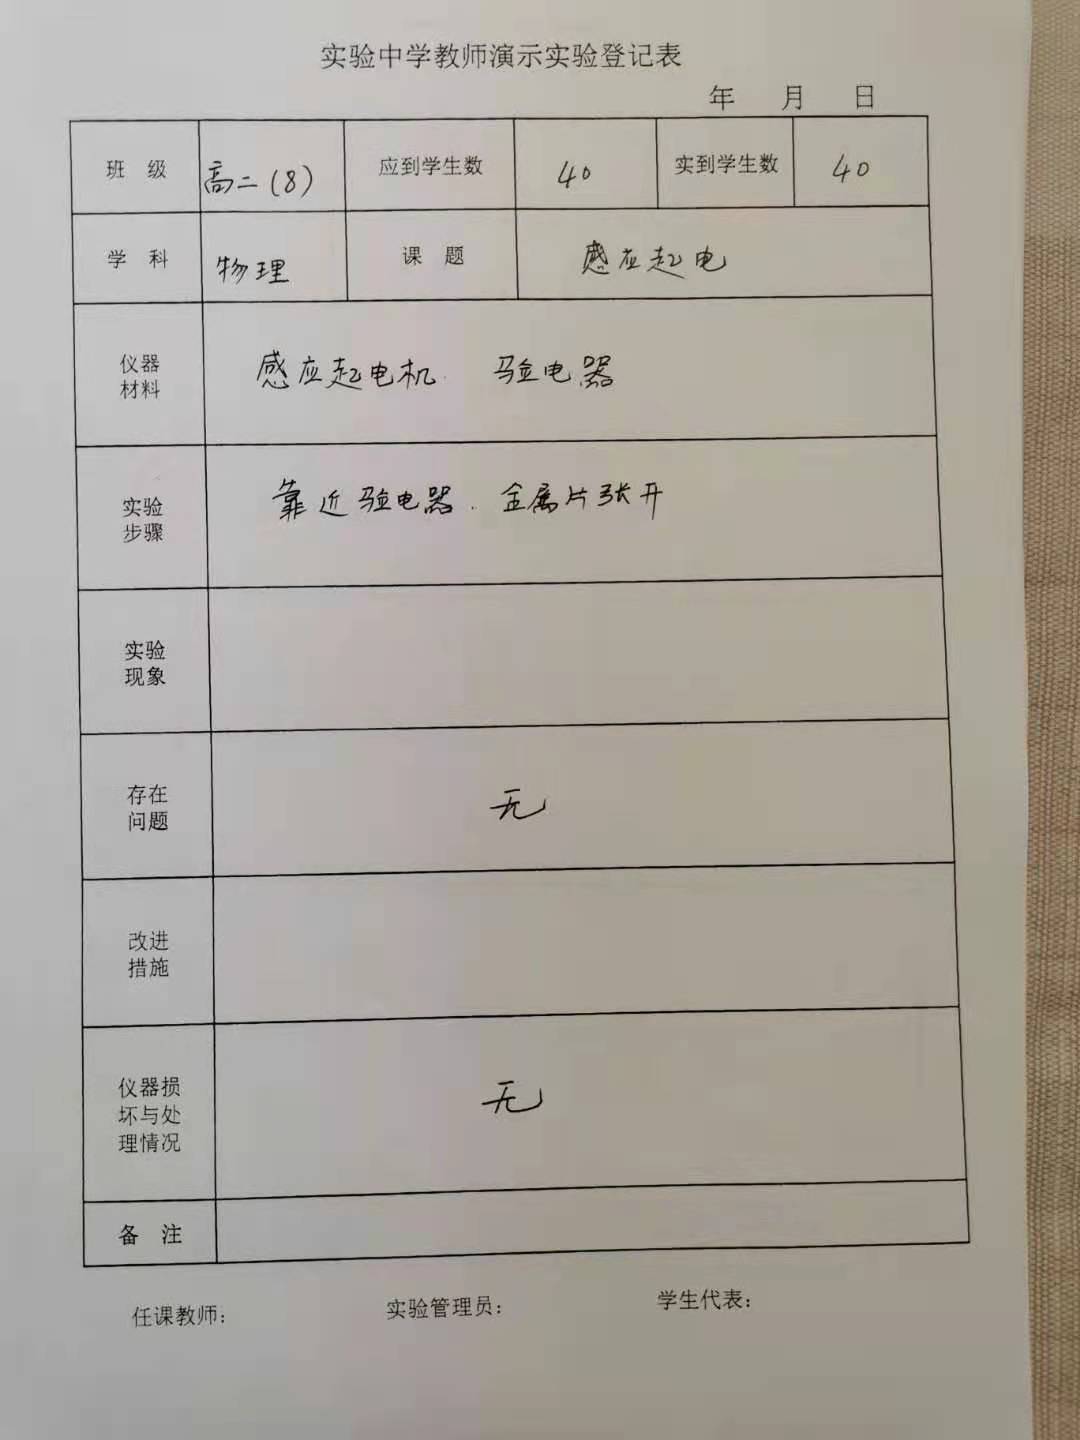 实验中学教师演示实验登记表
年 月 日
班 级 高二(8) 应到学生数 40 实到学生数 40
学 科 物理 课 题 感应起电
仪器
材料
感应起电机. 验电器
实验
步骤
靠近验电器. 金属片张开
实验
现象
存在
问题
无
改进
措施
仪器损
坏与处
理情况
无
备 注
任课教师: 实验管理员: 学生代表: